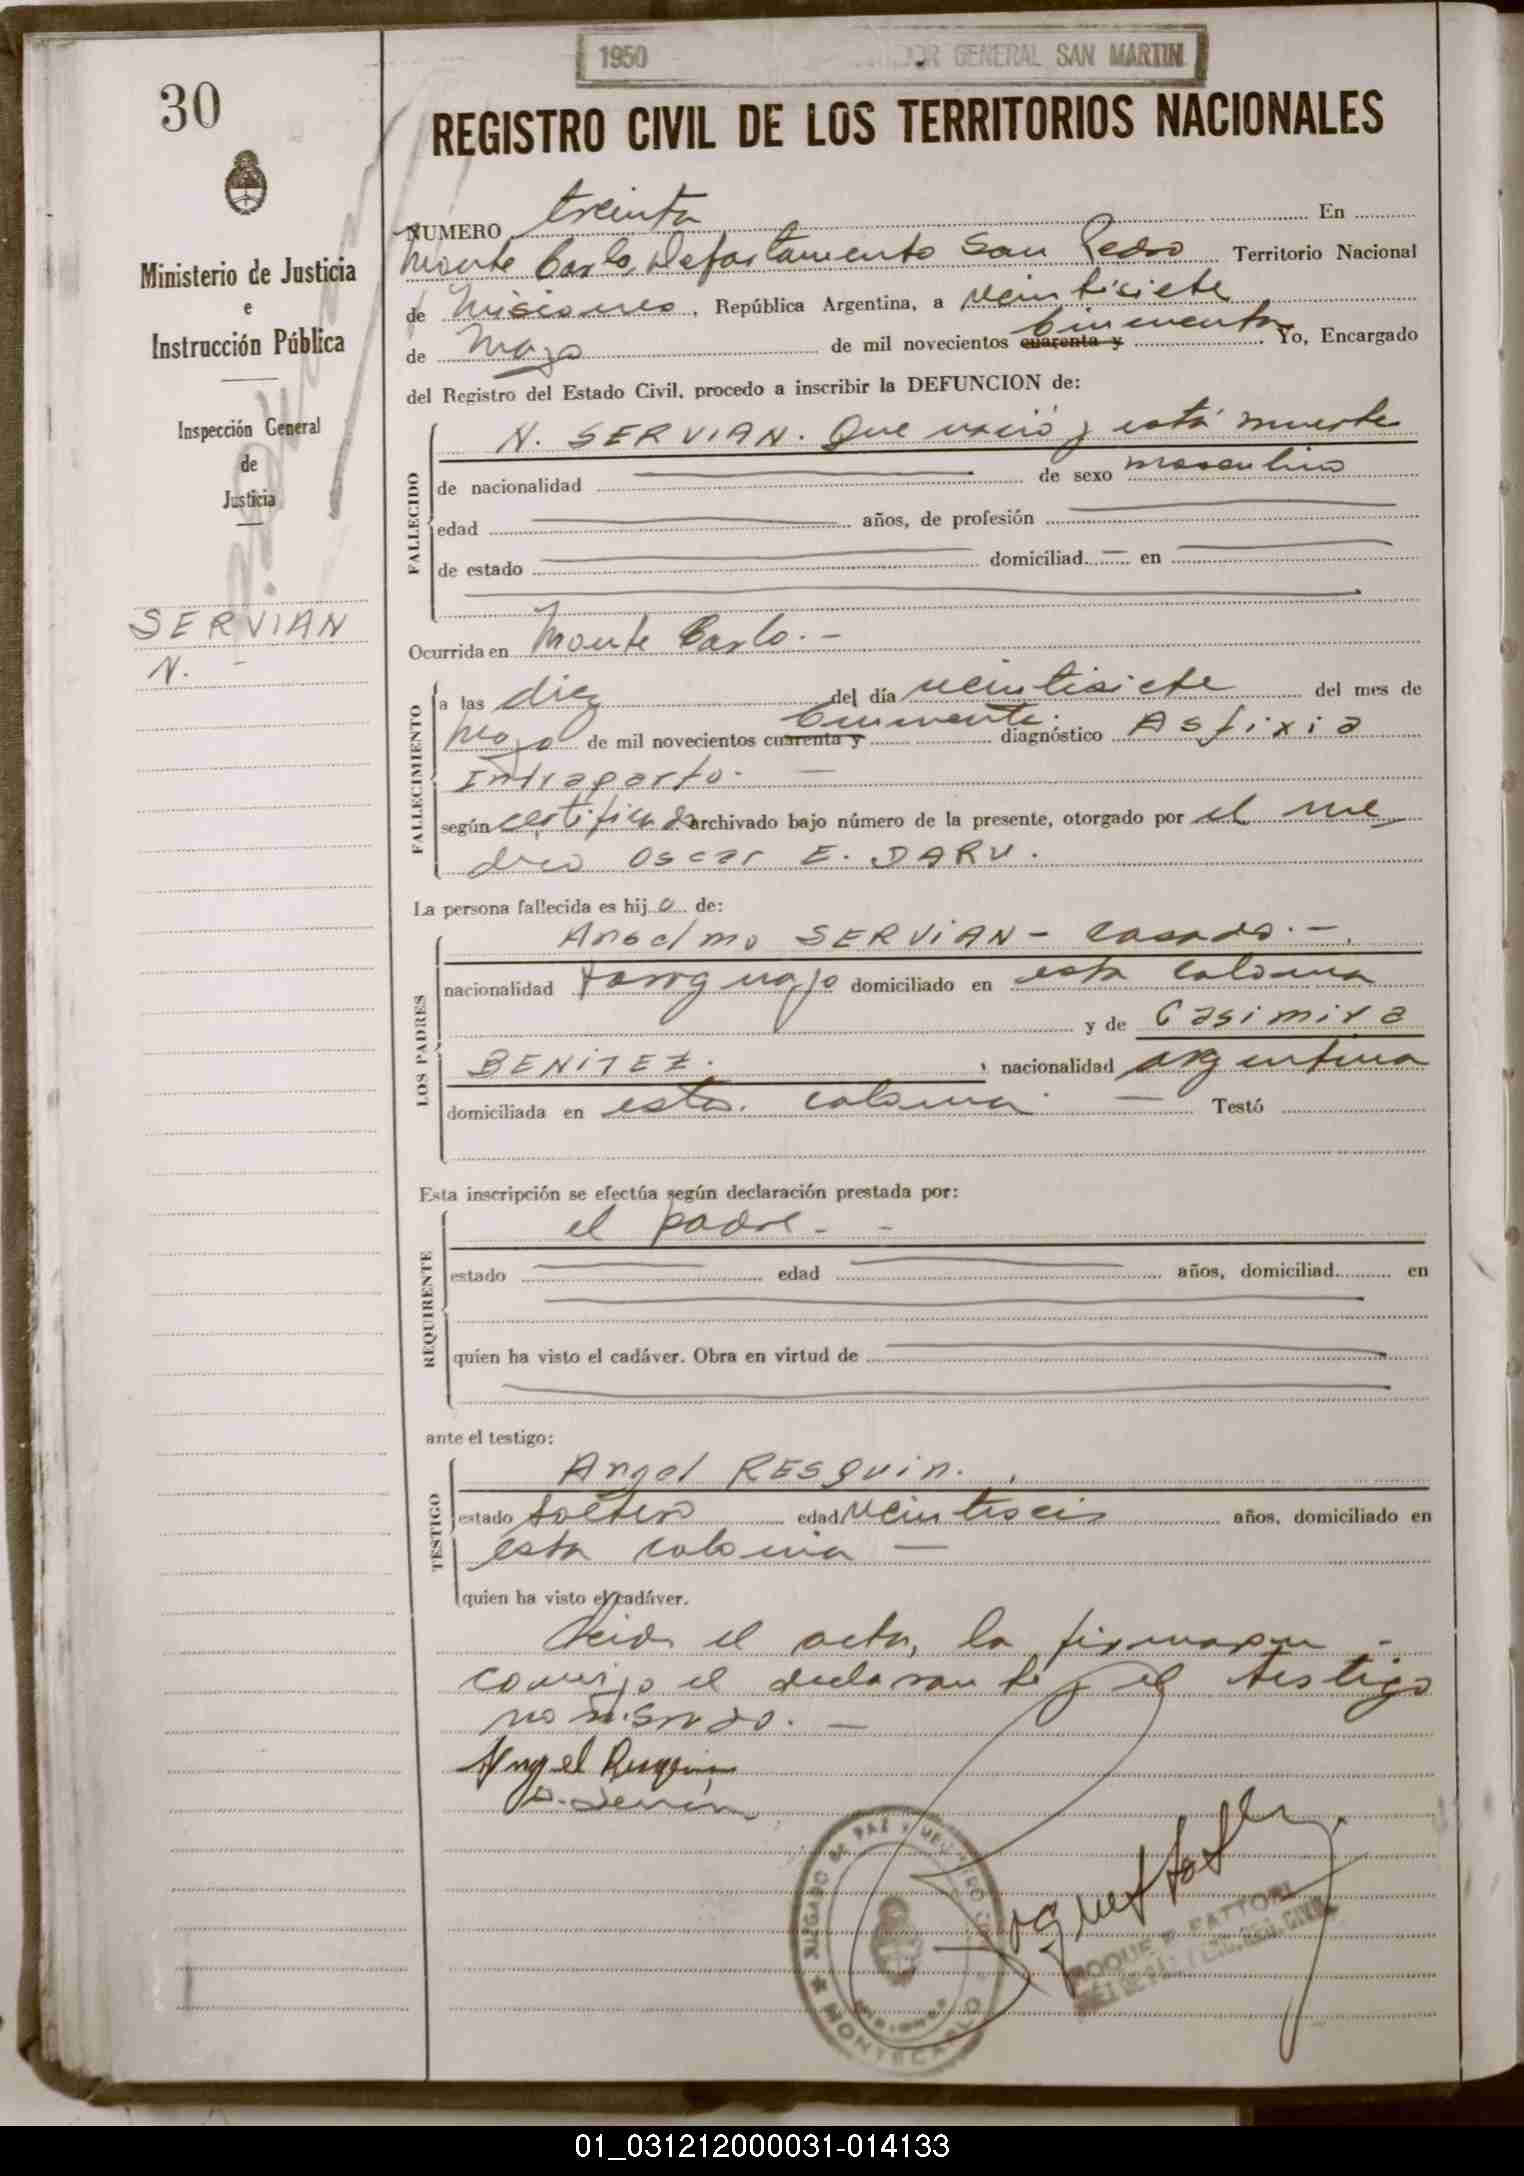 1950 OR GENERAL SAN MARTIN
30
REGISTRO CIVIL DE LOS TERRITORIOS NACIONALES
Ministerio de Justicia
e
Instrucción Pública
Inspección General
de
Justicia
SERVIAN
N. -
NUMERO treinta En
Monte Carlo, Departamento San Pedro Territorio Nacional
de Misiones, República Argentina, a veintisiete
de Mayo de mil novecientos cuarenta y cincuenta Yo, Encargado
del Registro del Estado Civil, procedo a inscribir la DEFUNCION de:
FALLECIDO
N. SERVIAN. Que nació y está muerto
de nacionalidad de sexo masculino
edad años, de profesión
de estado domiciliad en
Ocurrida en Monte Carlo. -
FALLECIMIENTO
a las diez del día veintisiete del mes de
Mayo de mil novecientos cuarenta y cincuenta. diagnóstico Asfixia
Intraparto. -
según certificado archivado bajo número de la presente, otorgado por el me
dico Oscar E. DARU.
La persona fallecida es hijo de:
LOS PADRES
Anselmo SERVIAN - casado. -
nacionalidad paraguayo domiciliado en esta colonia
y de Casimira
BENITEZ. , nacionalidad argentina
domiciliada en esta colonia. - Testó
Esta inscripción se efectúa según declaración prestada por:
REQUIRENTE
el padre - -
estado edad años, domiciliad en
quien ha visto el cadáver. Obra en virtud de
ante el testigo:
TESTIGO
Angel RESQUIN.
estado soltero edad veintiseis años, domiciliado en
esta colonia -
quien ha visto el cadáver.
Leida el acta, la firmaron -
conmigo el declarante y el testigo
Angel Resquin
JUZGADO DE PAZ Y REGISTRO CIVIL
MISIONES
MONTECARLO
ROQUE P. FATTORI
01_031212000031-014133